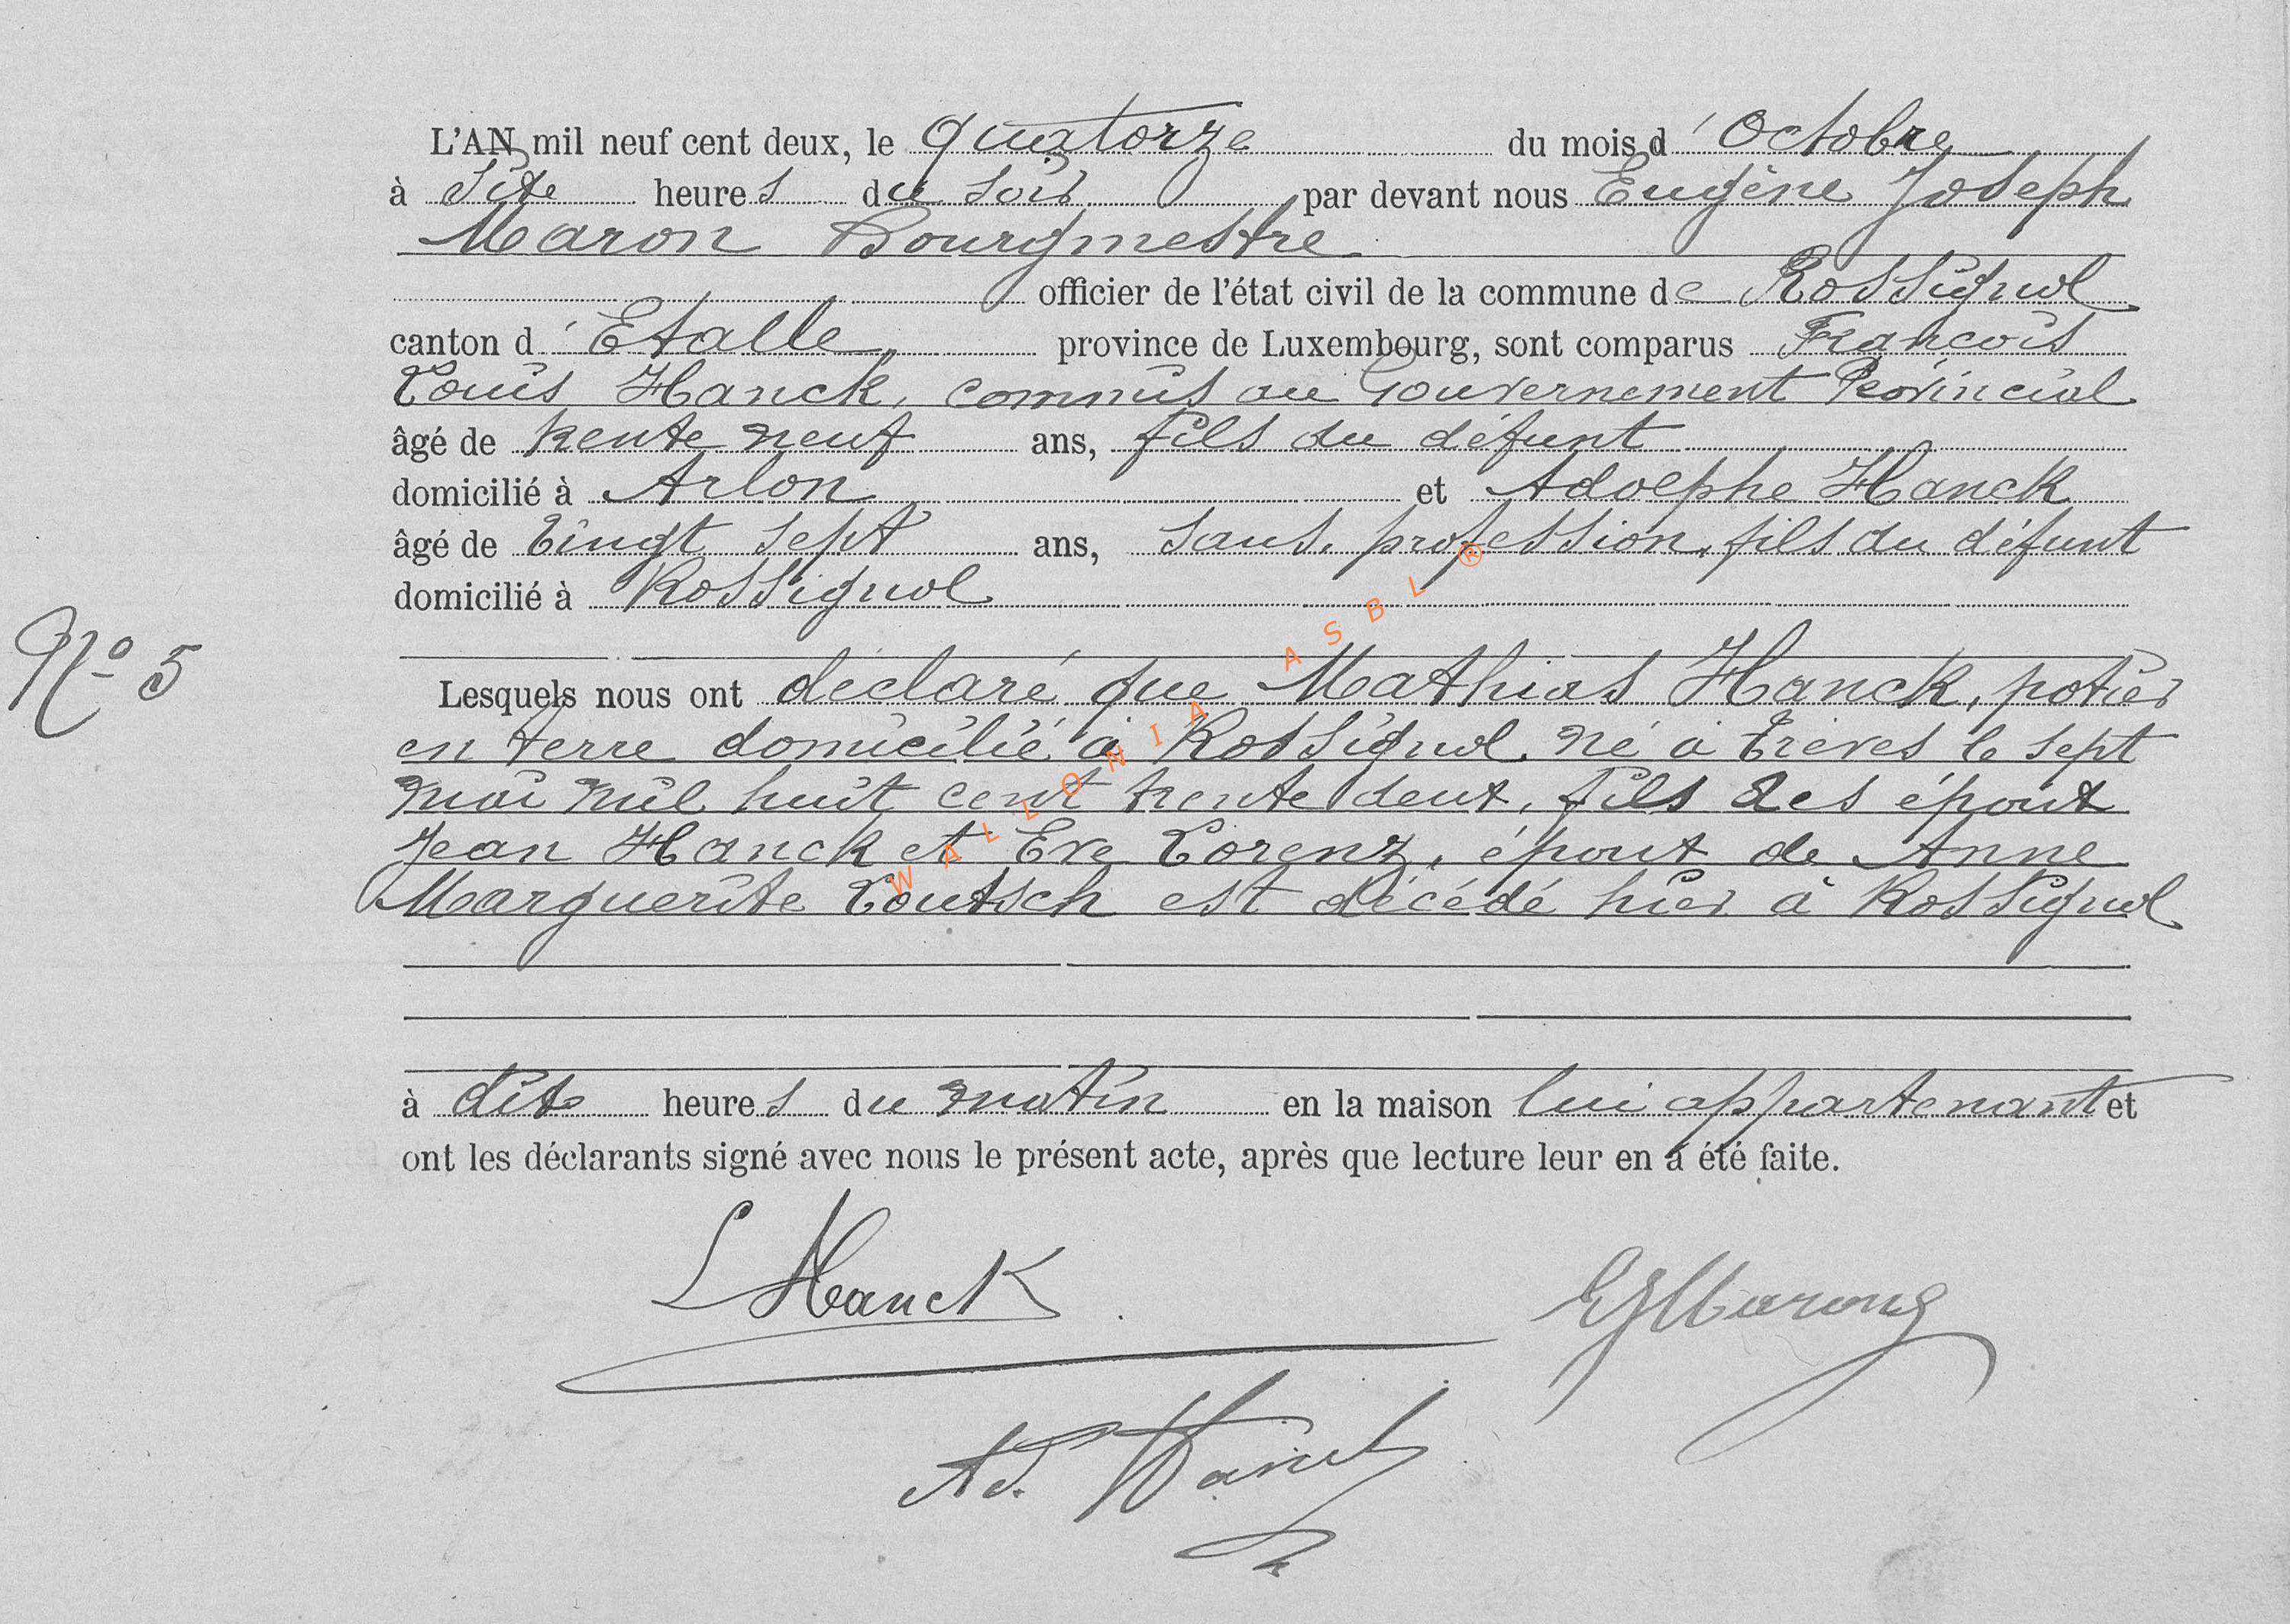 L'AN mil neuf cent deux, le quatorze du mois d'Octobre
à six heures du soir par devant nous Eugène Joseph
Maron Bourgmestre
officier de l'état civil de la commune de Rossignol
canton d'Etalle province de Luxembourg, sont comparus François
Louis Hanck, commis au Gouvernement Provincial
âgé de trente neuf ans, fils du défunt
domicilié à Arlon et Adolphe Hanck
âgé de vingt sept ans, sans profession, fils du défunt
domicilié à Rossignol
No 5
Lesquels nous ont déclaré que Mathias Hanck, potier
en terre domicilié à Rossignol, né à Trèves le sept
mai mil huit cent trente deux, fils des époux
Jean Hanck et Eve Lorenz, époux de Anne
Marguerite Loutsch est décédé hier à Rossignol
à dix heures du matin en la maison lui appartenant et
ont les déclarants signé avec nous le présent acte, après que lecture leur en a été faite.
L Hanck
EJMaron
Ad. Hanck
WALLONIA ASBL ®